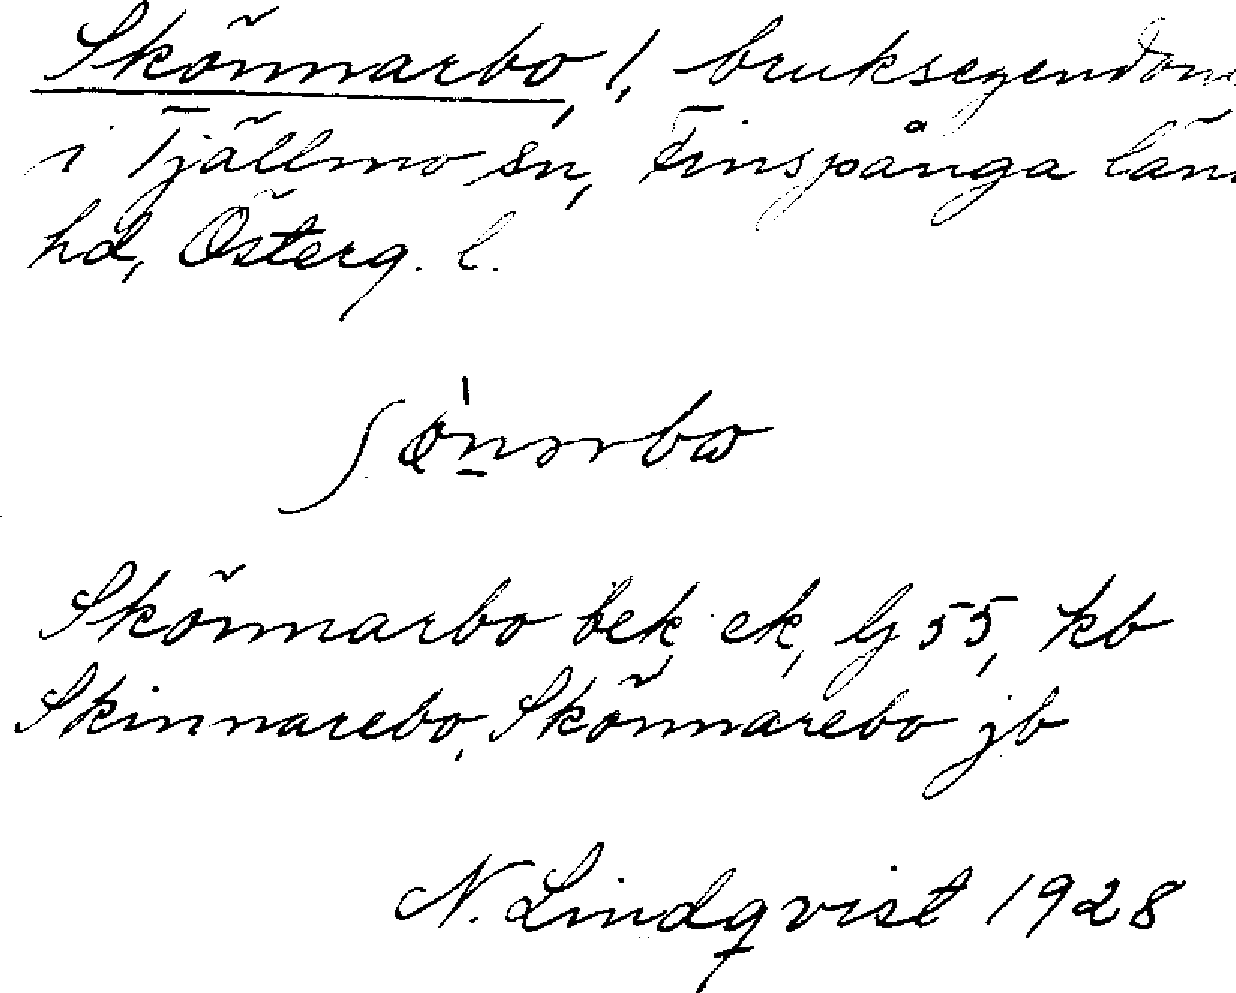 Skönnarbo, 1, bruksegendom
i Tjällmo sn, Finspånga läns
hd, Österg. l.
Skönnarbo bek, ek, G 55, kb
Skinnarebo, Skönnarebo jb
N. Lindqvist 1928